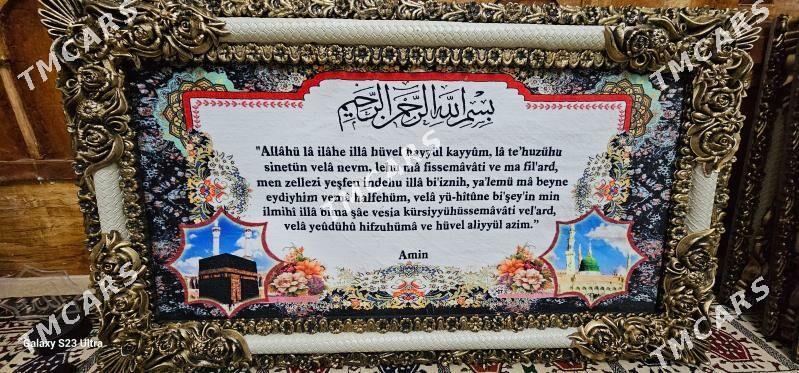 بسم الله الرحمن الرحيم
"Allâhü lâ ilâhe illâ hüvel hayyül kayyûm, lâ te'huzühu
sinetün velâ nevm, lehu mâ fissemâvâti ve ma fil'ard,
men zellezi yeşfeu indehu illâ bi'iznih, ya'lemü mâ beyne
eydiyhim vema halfehüm, velâ yü-hîtûne bi'şey'in min
ilmihî illâ bima şâe vesia kürsiyyühüssemâvâti vel'ard,
velâ yeûdühû hifzuhümâ ve hüvel aliyyül azim."
Amin
Galaxy S23 Ultra
TMCARS
TMCARS
TMCARS
TMCARS
TMCARS
TMCARS
TMCARS
TMCARS
TMCARS